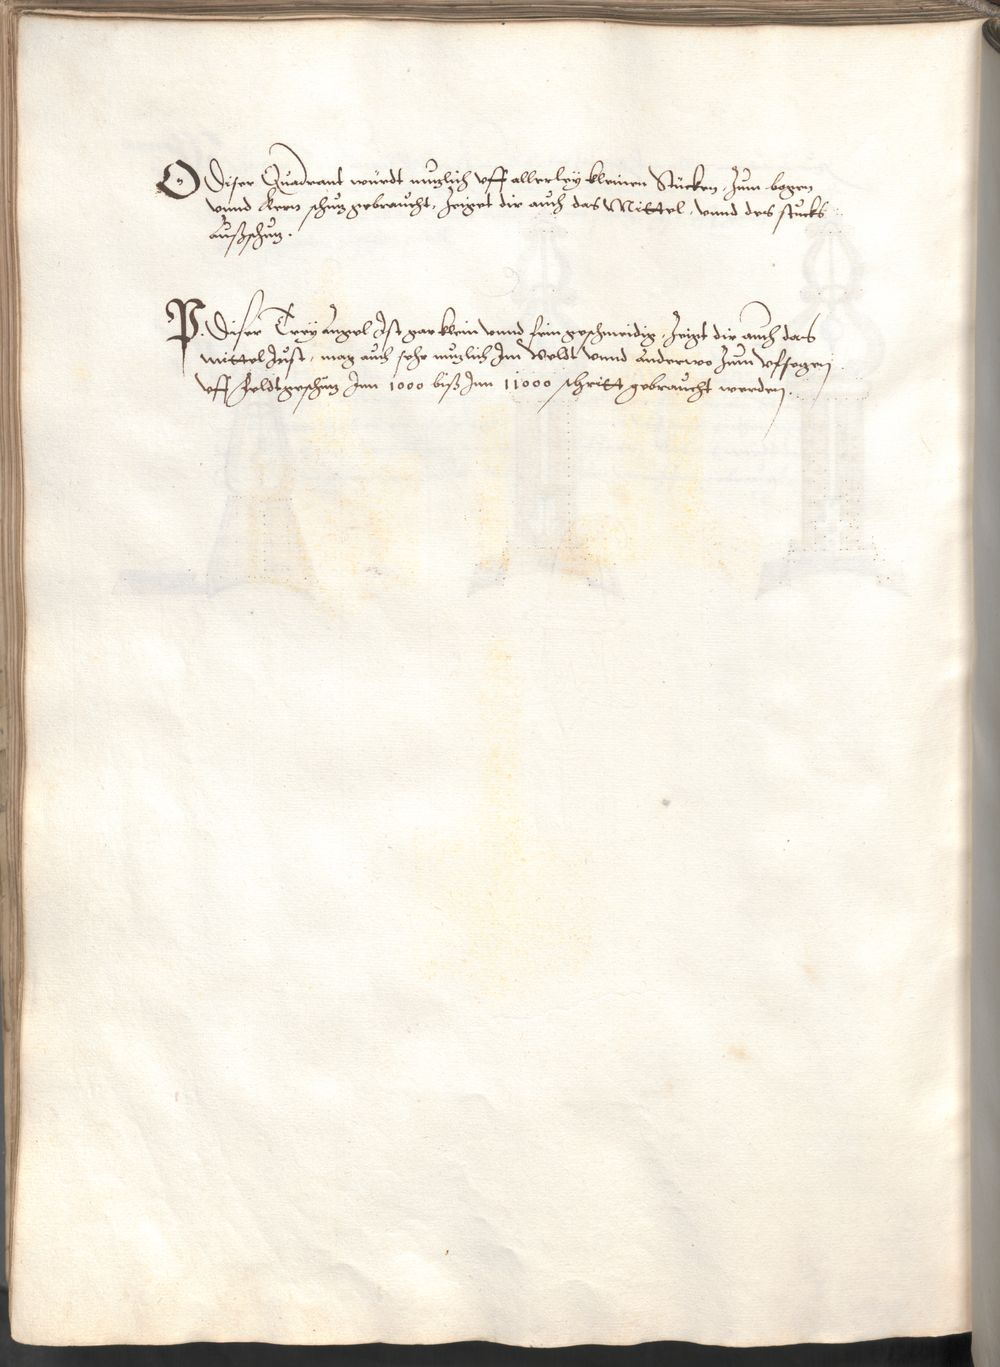 O Diser Quadrant würdt nutzlich uff allerley kleinen Stücken, Zum bogen
vnnd Kern schutz gebraucht, Zeiget dir auch das Mittel, vnnd des stucks
Außschutz.
P. Diser Trey angel Ist gar klein vnnd fein geschmeidig, Zeigt dir auch das
mittel Just, mag auch sehr nutzlich Im Veldt vnnd anderwo Zum vffsegen
vff Feldtgeschutz Inn 1000 biß Inn 11000 schritt gebraucht werden.